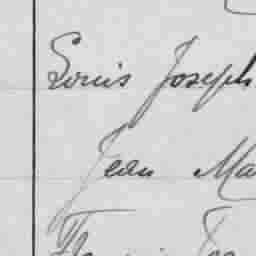 Louis Joseph
Jean Ma